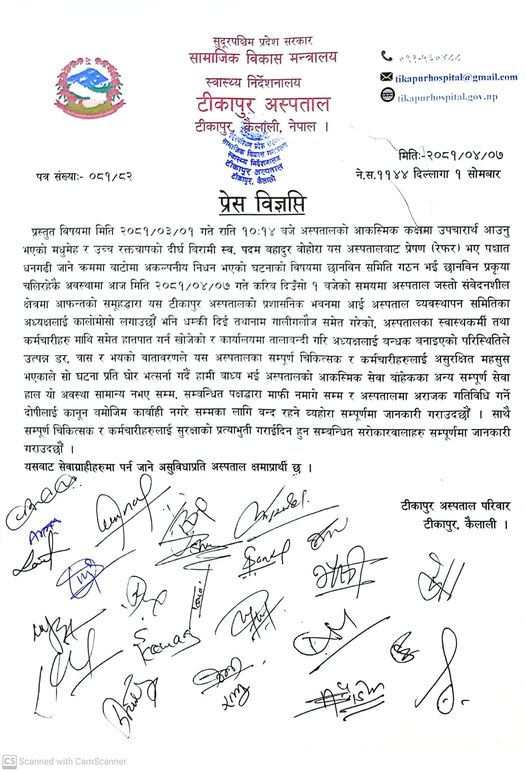 सुदूरपश्चिम प्रदेश सरकार
सामाजिक विकास मन्त्रालय
स्वास्थ्य निर्देशनालय
टीकापुर अस्पताल
टीकापुर, कैलाली, नेपाल ।
०९१-५६०४८८
tikapurhospital@gmail.com
tikapurhospital.gov.np
मितिः-२०८१/०४/०७
पत्र संख्याः- ०८१/८२
ने.स.११४४ दिल्लागा १ सोमवार
प्रेस विज्ञप्ति
प्रस्तुत विषयमा मिति २०८१/०३/०१ गते राति १०:१४ बजे अस्पतालको आकस्मिक कक्षमा उपचारार्थ आउनु
भएको मधुमेह र उच्च रक्तचापको दीर्घ विरामी स्व. पदम बहादुर बोहोरा यस अस्पतालवाट प्रेषण (रेफर) भए पश्चात
धनगढी जाने क्रममा वाटोमा अकल्पनीय निधन भएको घटनाको विषयमा छानविन समिति गठन भई छानविन प्रकृया
चलिरहेकै अवस्थामा आज मिति २०८१/०४/०७ गते करिव दिउँसो १ बजेको समयमा अस्पताल जस्तो संवेदनशील
क्षेत्रमा आफन्तको समूहद्धारा यस टीकापुर अस्पतालको प्रशासनिक भवनमा आई अस्पताल व्यवस्थापन समितिका
अध्यक्षलाई कालोमोसो लगाउछौं भनि धम्की दिई तथानाम गालीगलौज समेत गरेको, अस्पतालका स्वास्थकर्मी तथा
कर्मचारीहरु माथि समेत हातपात गर्न खोजेको र कार्यालयमा तालावन्दी गरि अध्यक्षलाई बन्धक बनाइएको परिस्थितिले
उत्पन्न डर, त्रास र भयको वातावरणले यस अस्पतालका सम्पूर्ण चिकित्सक र कर्मचारीहरुलाई असुरक्षित महसुस
भएकाले सो घटना प्रति घोर भत्सर्ना गर्दै हामी वाध्य भई अस्पतालको आकस्मिक सेवा वाहेकका अन्य सम्पूर्ण सेवा
हाल यो अवस्था सामान्य नभए सम्म, सम्वन्धित पक्षद्धारा माफी नमागे सम्म र अस्पतालमा अराजक गतिविधि गर्ने
दोषीलाई कानून वमोजिम कार्वाही नगरे सम्मका लागि वन्द रहने व्यहोरा सम्पूर्णमा जानकारी गराउदछौं । साथै
सम्पूर्ण चिकित्सक र कर्मचारीहरुलाई सुरक्षाको प्रत्याभुती गराईदिन हुन सम्वन्धित सरोकारवालाहरु सम्पूर्णमा जानकारी
गराउदछौं ।
यसवाट सेवाग्राहीहरुमा पर्न जाने असुविधाप्रति अस्पताल क्षमाप्रार्थी छ ।
टीकापुर अस्पताल परिवार
टीकापुर, कैलाली ।
CS Scanned with CamScanner